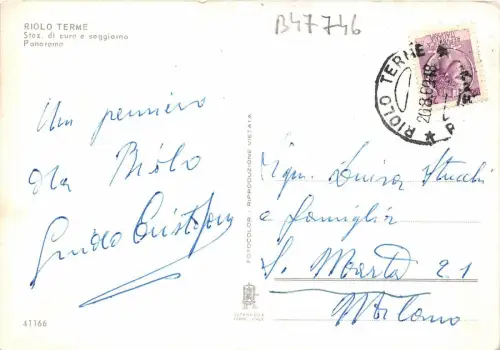 RIOLO TERME
Staz. di cura e soggiorno
Panorama
B47746
RIOLO TERME
20.8.60.18
Un pensiero
da Riolo
Guido
FOTOCOLOR - RIPRODUZIONE VIETATA
Sign. Luisa Stucchi
e famiglia
S. Marta 21
Milano
41166